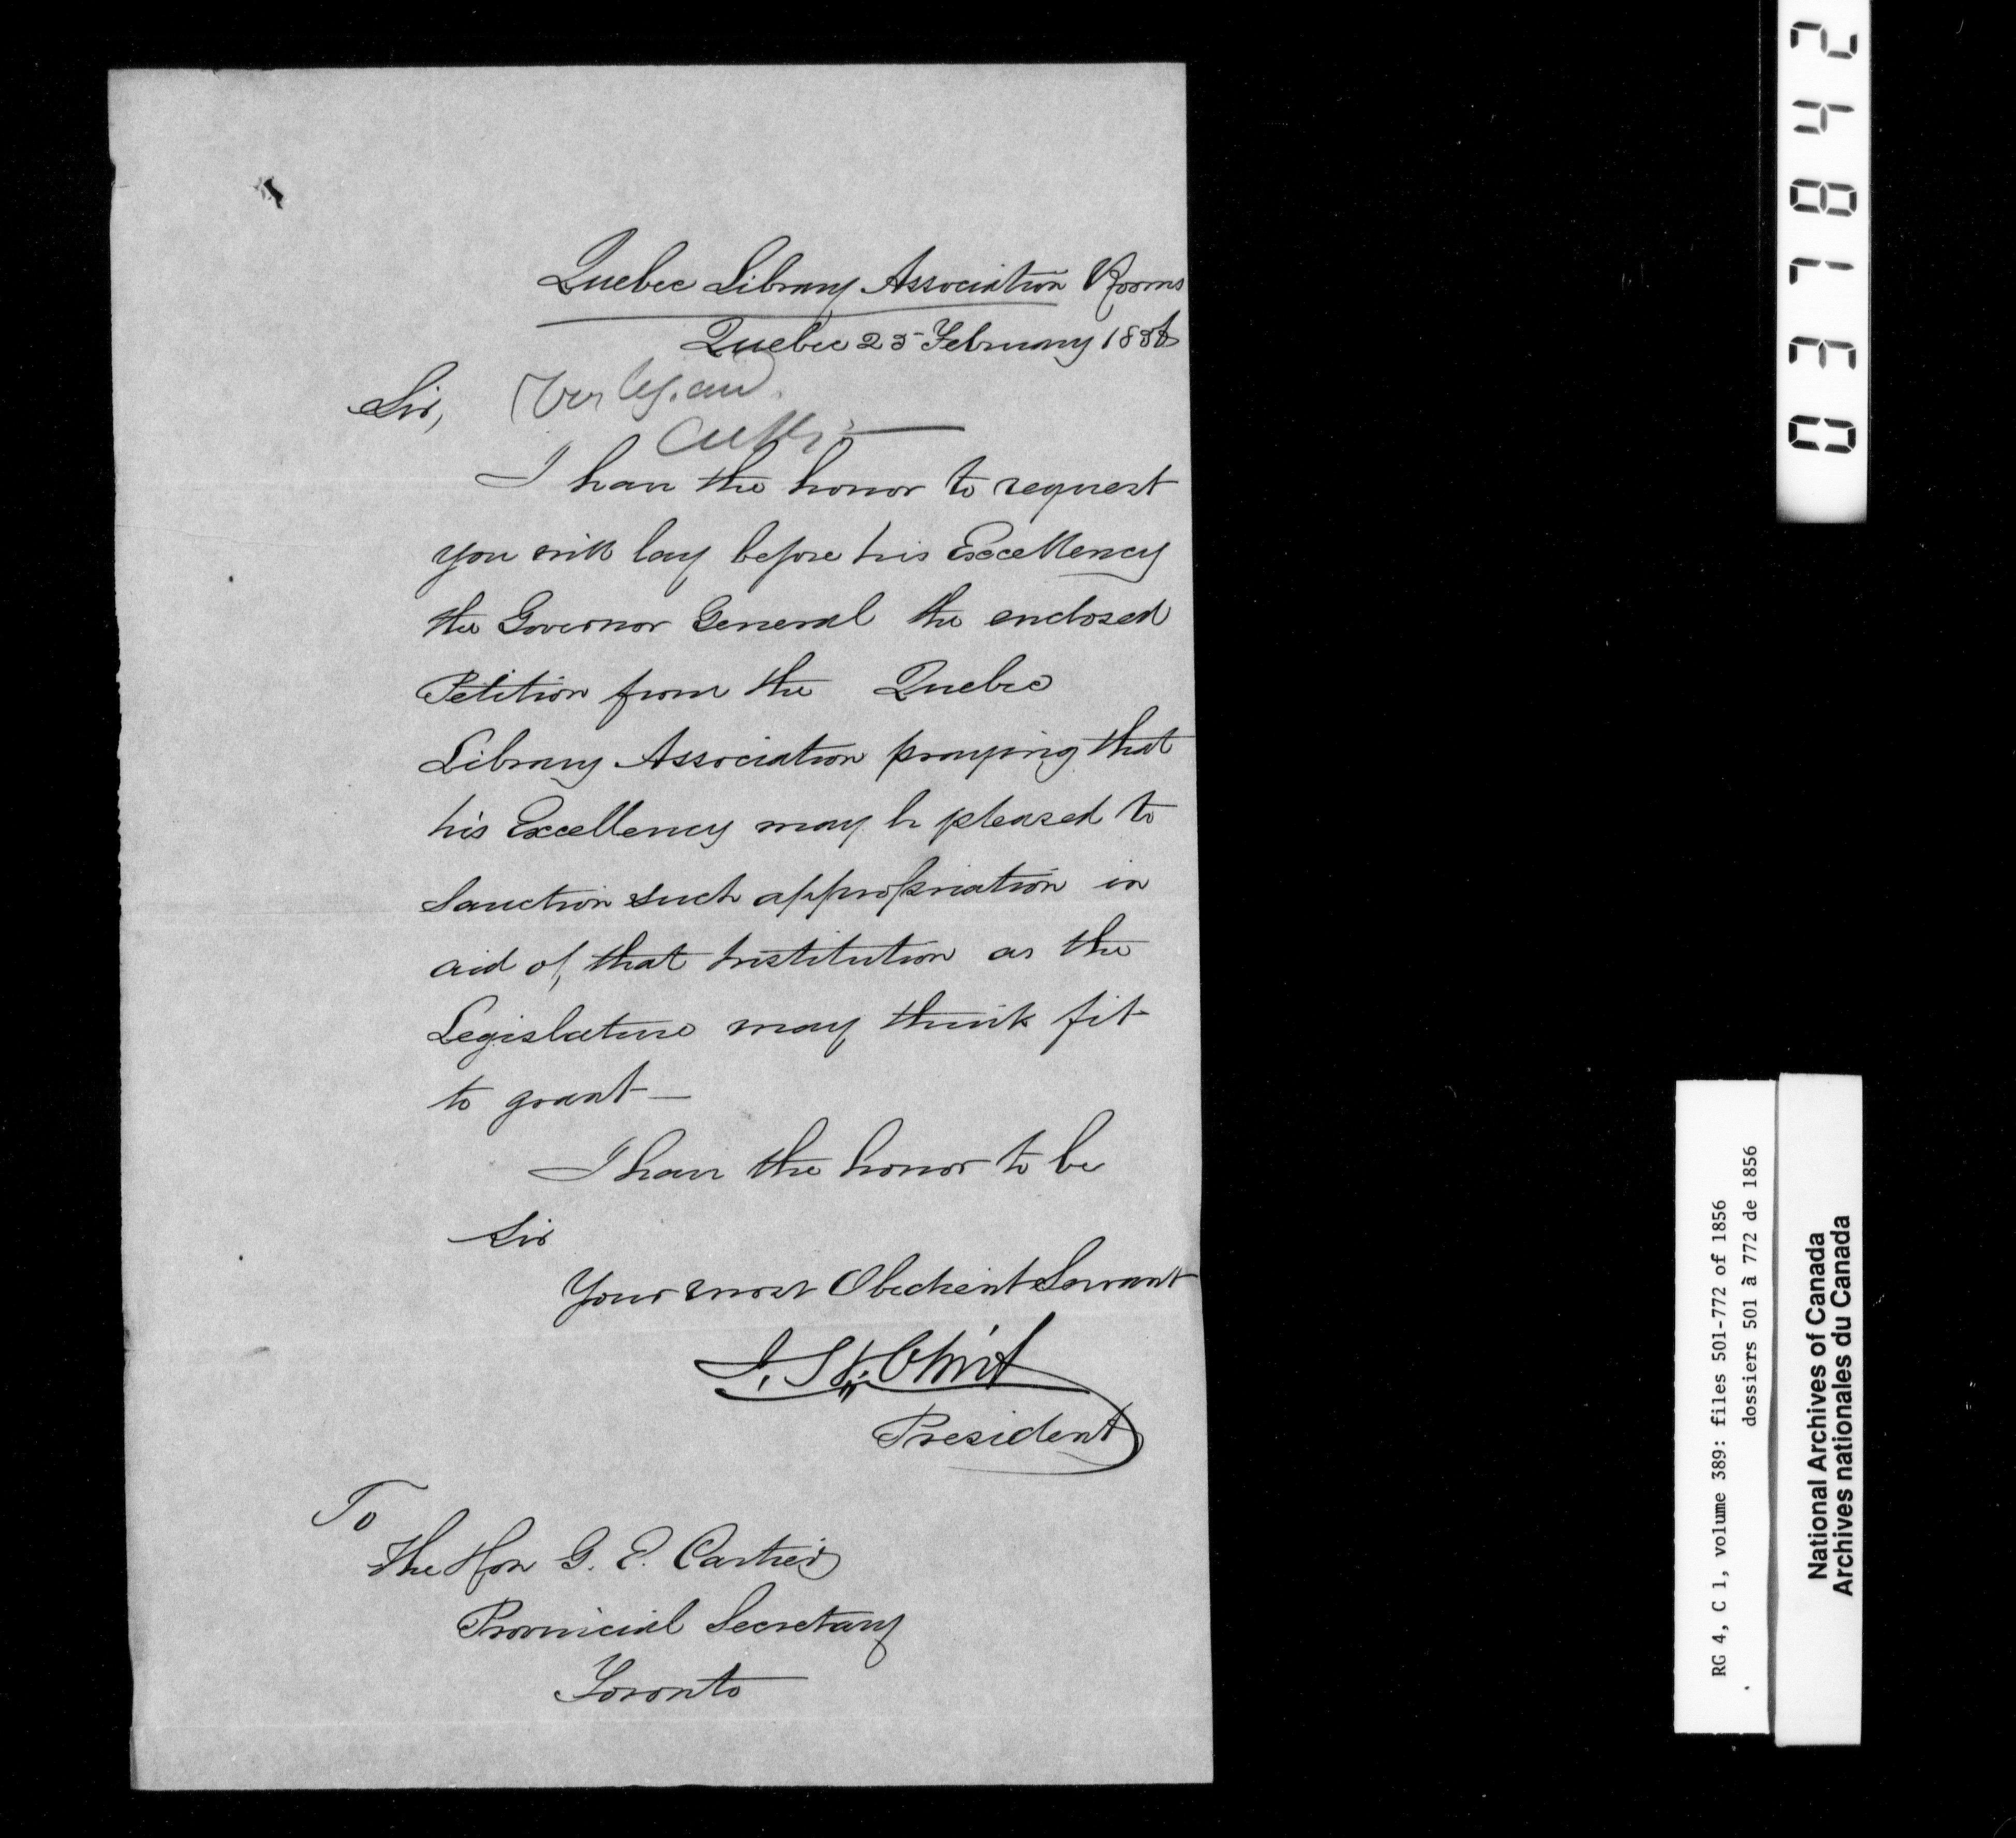 Quebec Library Association Rooms
Quebec 25 February 1856
Sir,
I have the honor to request
you will lay before his Excellency
the Governor General the enclosed
Petition from the Quebec
Library Association praying that
his Excellency may be pleased to
Sanction such appropriation in
aid of that Institution as the
Legislature may think fit
to grant—
I have the honor to be
Sir
Your most Obedient Servant
President
To
The Hon G. E. Cartier
Provincial Secretary
Toronto
037842
RG 4, C 1, volume 389: files 501-772 of 1856
dossiers 501 à 772 de 1856
National Archives of Canada
Archives nationales du Canada